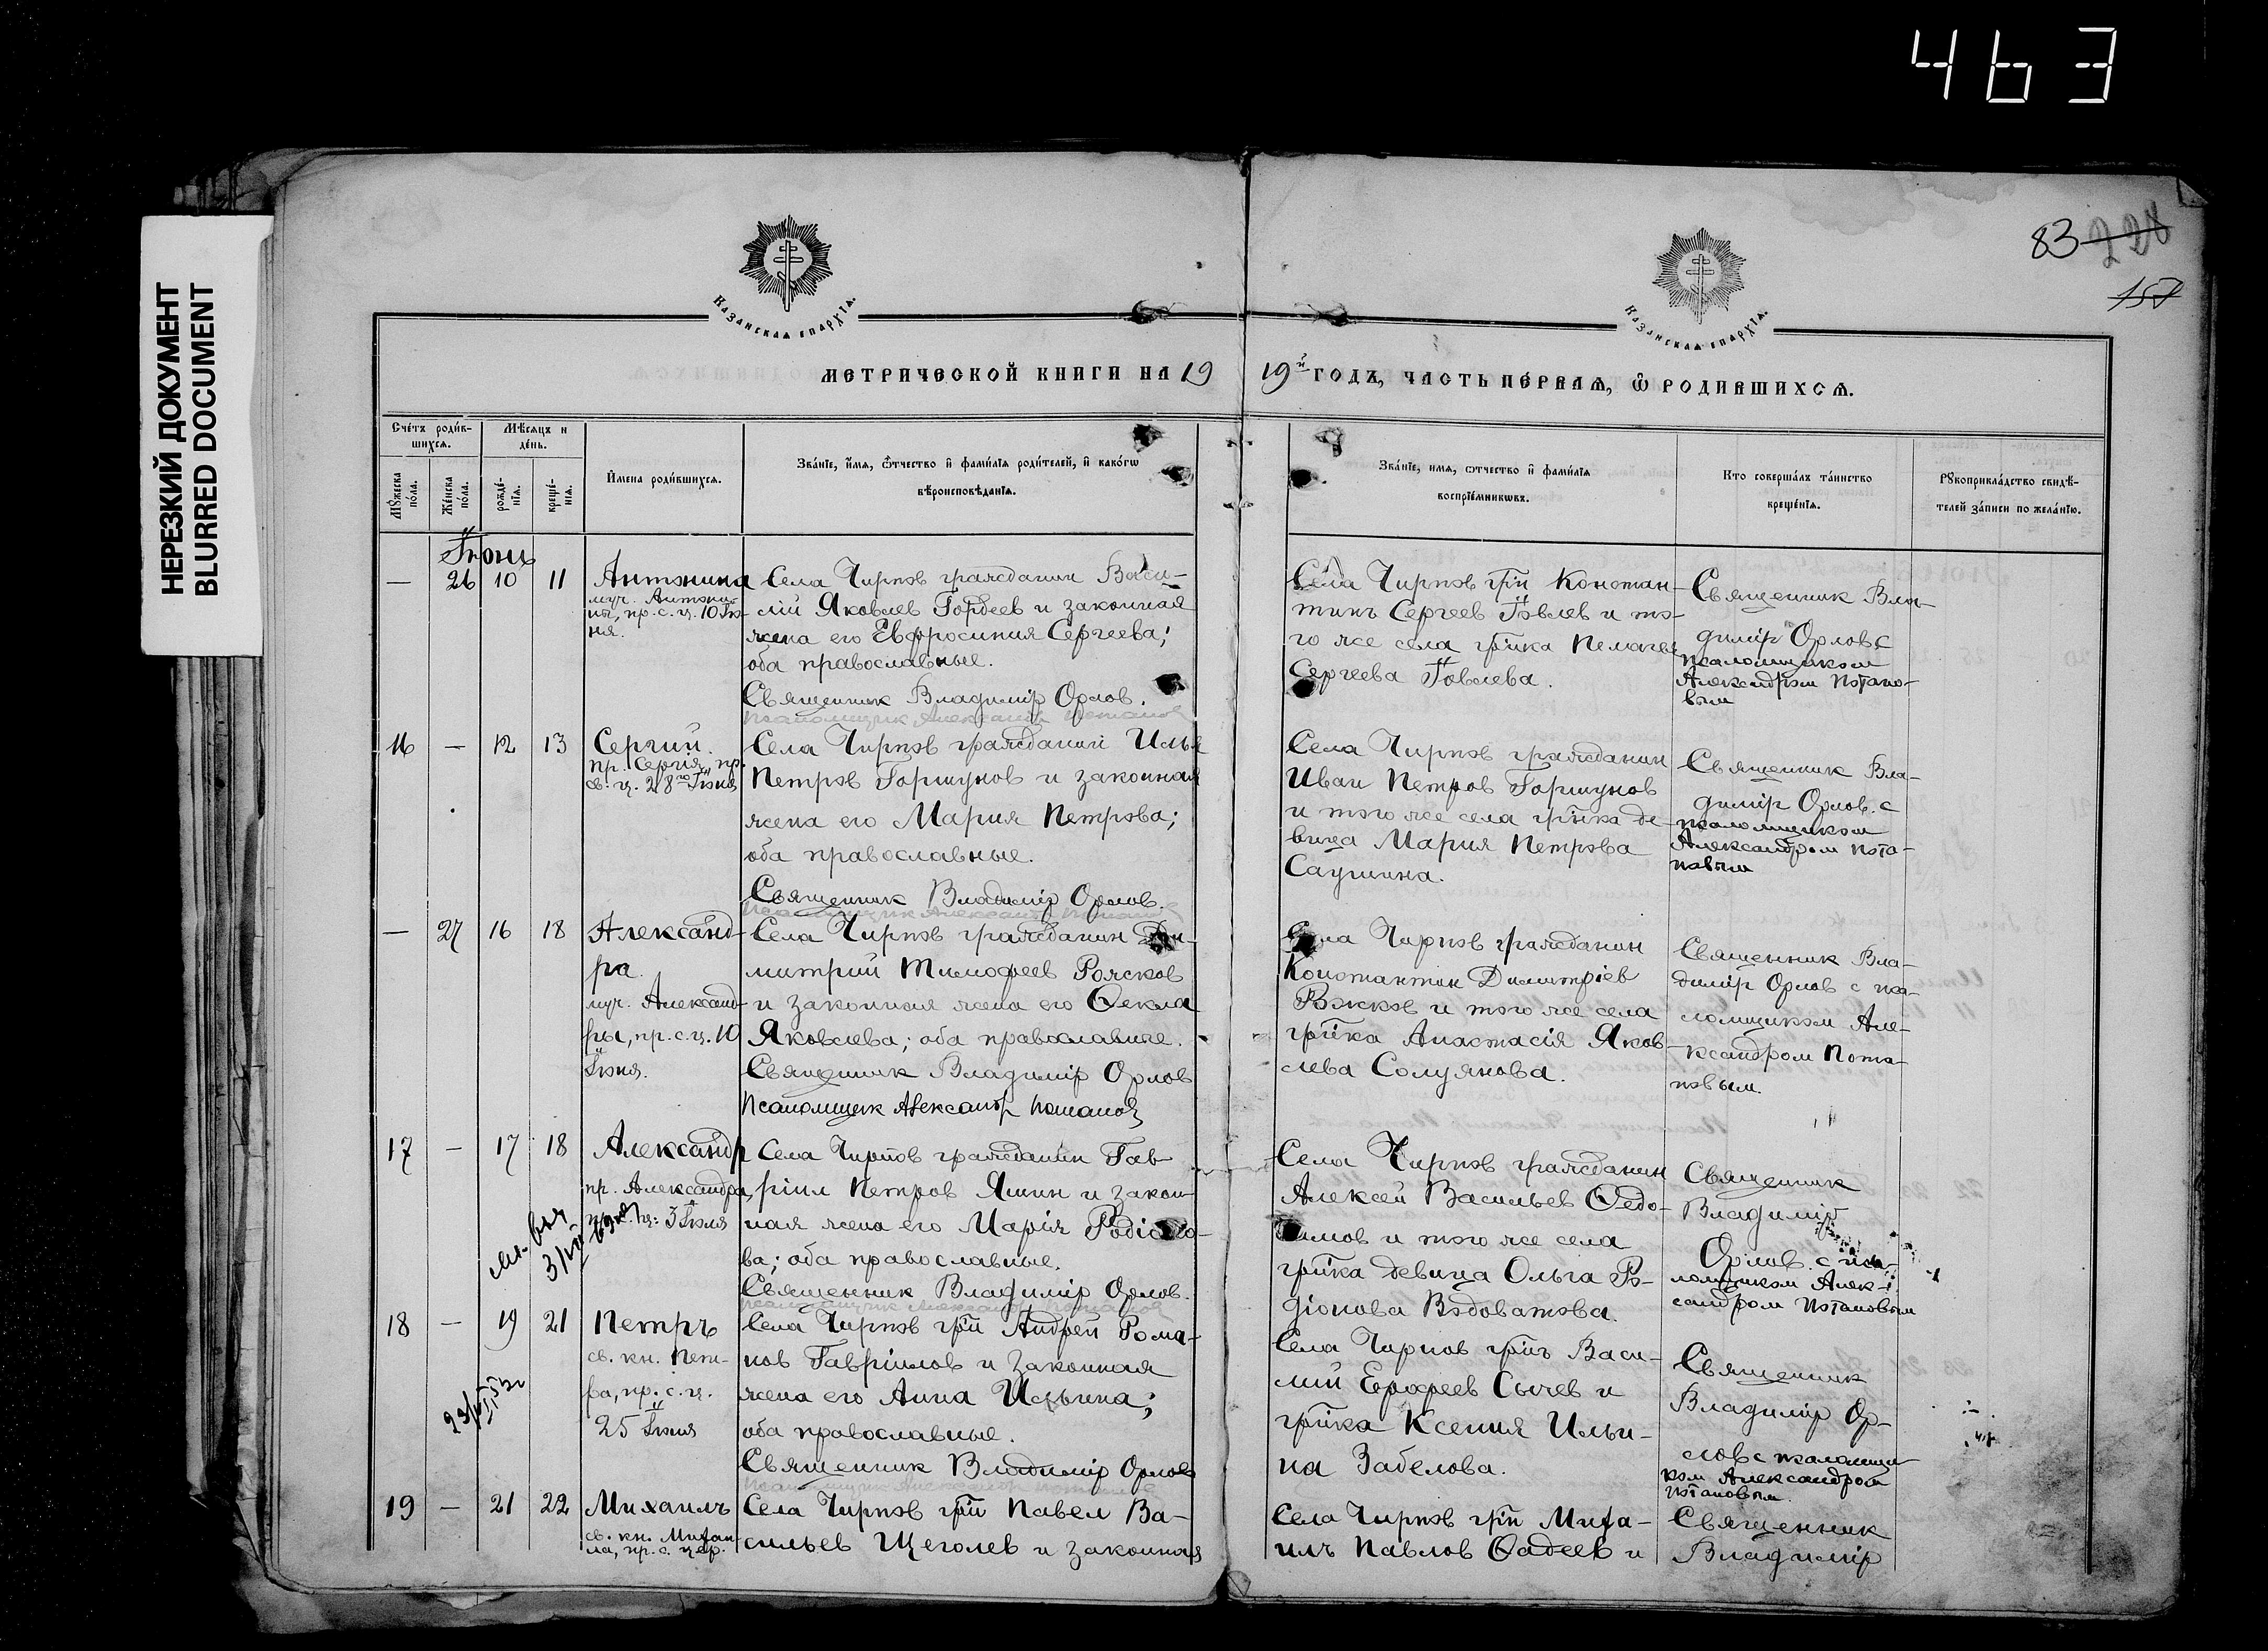 463
НЕРЕЗКИЙ ДОКУМЕНТ
BLURRED DOCUMENT
83 228
157
КАЗАНСКАЯ ЕПАРХІЯ.
КАЗАНСКАЯ ЕПАРХІЯ.
МЕТРИЧЕСКОЙ КНИГИ НА 19 19й ГОДЪ, ЧАСТЬ ПЕРВАЯ, Ѡ РОДИВШИХСЯ.
Счетъ родив-
шихся.
Мѣсяцъ и
день.
Мужеска
пола.
Женска
пола.
рожде-
нія.
креще-
нія.
Имена родившихся.
Званіе, имя, отчество и фамилія родителей, и какогѡ
вѣроисповѣданія.
Званіе, имя, отчество и фамилія
воспріемникѡвъ.
Кто совершалъ таинство
крещенія.
Рукоприкладство свидѣ-
телей записи по желанію.
Іюнь
— 26 10 11
Антонина
муч. Антони-
ны, пр. с. ц. 10 Iю-
ня.
Села Чирпов гражданин Васи-
лий Яковлев Гордеев и законная
жена его Евфросиния Сергеева;
оба православные.
Священник Владимір Орлов.
Псаломщик Александр Потапов
Села Чирпов гр̃й Констан-
тинъ Сергеев Говлев и то-
го же села гр̃нка Пелагея
Сергеева Говлева.
Священник Вла-
димір Орлов с
псаломщиком
Александром Потапо-
вым
16 — 12 13
Сергий.
пр. Сергия, пр.
с. ц. 28го Iюня
Села Чирпов гражданин Илья
Петров Горшунов и законная
жена его Мария Петрова;
оба православные.
Священник Владимір Орлов.
Псаломщик Александр Потапов
Села Чирпов гражданин
Иван Петров Горшунов
и того же села гр̃нка де-
вица Мария Петрова
Саушина.
Священник Вла-
димір Орлов с
псаломщиком
Александром Пота-
повым
— 27 16 18
Александ-
ра.
муч. Александ-
ры, пр. с. ц. 10
Iюня.
Села Чирпов гражданин Ди-
митрий Тимофеев Рожков
и законная жена его Ѳекла
Яковлева; оба православные.
Священник Владимір Орлов
Псаломщик Александр Потапов
Села Чирпов гражданин
Константин Димитріев
Рожков и того же села
гр̃нка Анастасія Яков-
лева Солуянова.
Священник Вла-
димір Орлов с пса-
ломщиком Але-
ксандром Пота-
повым.
17 — 17 18
Александр
пр. Александра,
пр. с. ц. 3 Iюля
3/VII
Села Чирпов гражданин Гав-
ріил Петров Яшин и закон-
ная жена его Марія Родіоно-
ва; оба православные.
Священник Владимір Орлов.
Псаломщик Александр Потапов
Села Чирпов гражданин
Алексей Васильев Ѳедо-
тов и того же села
гр̃нка девица Ольга Ро-
діонова Вздоватова.
Священник
Владимір
Орлов с пса-
ломщиком Алек-
сандром Потаповым
18 — 19 21
Петръ
св. кн. Пет-
ра, пр. с. ц.
25 Iюня
Села Чирпов гр̃й Андрей Рома-
нов Гавріилов и законная
жена его Анна Ильина;
оба православные.
Священник Владимір Орлов
Псаломщик Александр Потапов
Села Чирпов гр̃нъ Васи-
лий Ерофеев Сычев и
гр̃нка Ксения Ильи-
на Забелова.
Священник
Владимір Ор-
лов с псаломщи-
ком Александром
Потаповым.
19 — 21 22
Михаилъ
св. кн. Михаи-
ла, пр. с. цер.
Села Чирпов гр̃й Павел Ва-
сильев Щеголев и законная
Села Чирпов гр̃й Миха-
илъ Павлов Ѳадеев и
Священник
Владимір